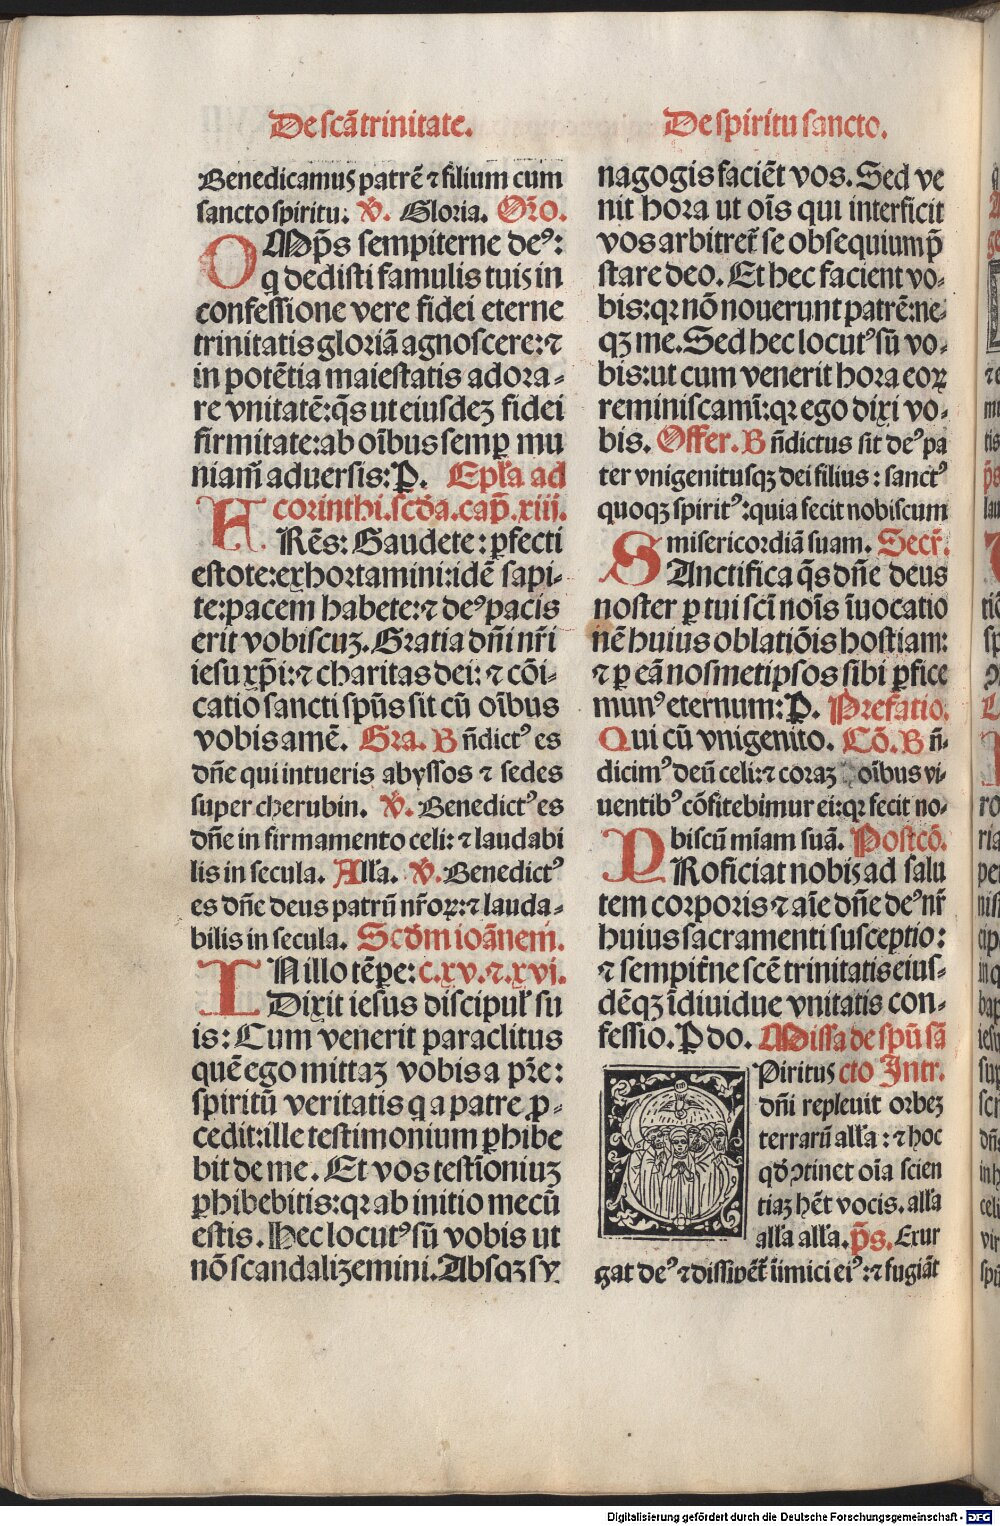 De scā trinitate.
Benedicamus patrē ⁊ filium cum
sancto spiritu. ℣. Gloria. Oro.
OMp̄s sempiterne deꝰ:
q dedisti famulis tuis in
confessione vere fidei eterne
trinitatis gloriā agnoscere: ⁊
in potētia maiestatis adora-
re vnitatē: q̄s ut eiusdeꝫ fidei
firmitate: ab oībus semꝑ mu
niam̄ aduersis: P. Epl̄a ad
corinthi. scd̄a. cap̄. xiii.
FRēs: Gaudete: ꝑfecti
estote: exhortamini: idē sapi-
te: pacem habete: ⁊ deꝰ pacis
erit vobiscuꝫ. Gratia dn̄i nr̄i
iesu xp̄i: ⁊ charitas dei: ⁊ cōi-
catio sancti sp̄us sit cū oībus
vobis amē. Gra. B n̄dictꝰ es
dn̄e qui intueris abyssos ⁊ sedes
super cherubin. ℣. Benedictꝰ es
dn̄e in firmamento celi: ⁊ laudabi
lis in secula. Alla. ℣. Benedictꝰ
es dn̄e deus patrū nr̄oꝝ: ⁊ lauda-
bilis in secula. Scd̄m ioānem.
IN illo tēpe: c. xv. ⁊. xvi.
Dixit iesus discipul' su
is: Cum venerit paraclitus
quē ego mittaꝫ vobis a pr̄e:
spiritū veritatis q a patre ꝓ-
cedit: ille testimonium ꝑhibe
bit de me. Et vos testīoniuꝫ
ꝑhibebitis: qꝛ ab initio mecū
estis. Hec locutꝰ sū vobis ut
nō scandalizemini. Absqꝫ sy
De spiritu sancto.
nagogis faciēt vos. Sed ve
nit hora ut oīs qui interficit
vos arbitret̄ se obsequium p̄
stare deo. Et hec facient vo-
bis: qꝛ nō nouerunt patrē: ne-
qꝫ me. Sed hec locutꝰ sū vo-
bis: ut cum venerit hora eoꝝ
reminiscamī: qꝛ ego dixi vo-
bis. Offer. B n̄dictus sit deꝰ pa
ter vnigenitusqꝫ dei filius: sanctꝰ
quoqꝫ spiritꝰ: quia fecit nobiscum
misericordiā suam. Secr̄.
SAnctifica q̄s dn̄e deus
noster ꝑ tui scī noīs īuocatio
nē huius oblatiōis hostiam:
⁊ ꝑ eā nosmetipsos tibi ꝑfice
munꝰ eternum: P. Prefatio.
Qui cū vnigenito. Cō. B n̄-
dicimꝰ deū celi: ⁊ coraꝫ oībus vi-
uentibꝰ cōfitebimur ei: qꝛ fecit no-
biscū mīam suā. Postcō.
PRoficiat nobis ad salu
tem corporis ⁊ aīe dn̄e deꝰ nr̄
huius sacramenti susceptio:
⁊ sempit̄ne scē trinitatis eius-
dēqꝫ īdiuidue vnitatis con-
fessio. P do. Missa de sp̄u sā
Piritus cto Intr.
dn̄i repleuit orbeꝫ
terrarū alla: ⁊ hoc
qd̄ ꝯtinet oīa scien
tiaꝫ hēt vocis. alla
alla alla. p̄s. Exur
gat deꝰ ⁊ dissipēt̄ īimici eiꝰ: ⁊ fugiāt
Digitalisierung gefördert durch die Deutsche Forschungsgemeinschaft - DFG